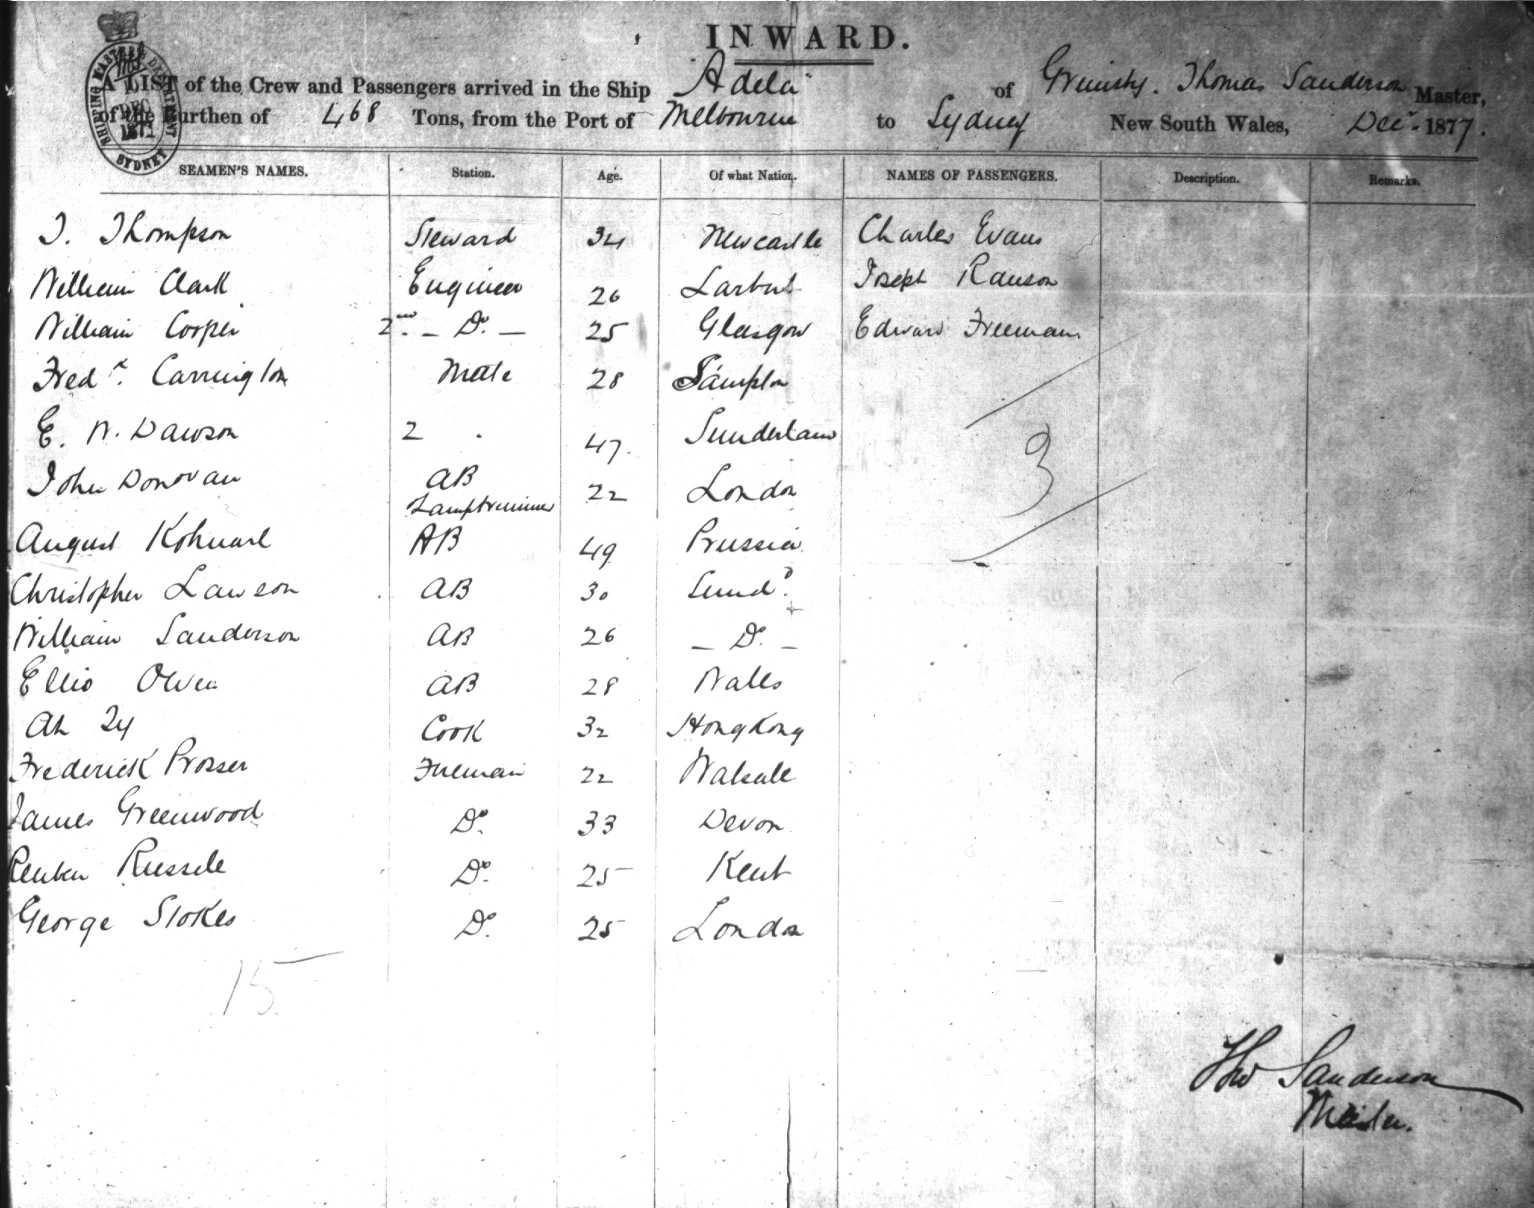 INWARD.
A LIST of the Crew and Passengers arrived in the Ship Adela of Grimsby. Thomas Sanderson Master,
of the Burthen of 468 Tons, from the Port of Melbourne to Sydney New South Wales, Decr. 1877.
SHIPPING MASTERS DEPARTMENT DEC 1877 SYDNEY
SEAMEN'S NAMES. Station. Age. Of what Nation. NAMES OF PASSENGERS. Description. Remarks.
T. Thompson Steward 34 Newcastle Charles Evans
William Clark Engineer 26 Larbert Joseph Ranson
William Cooper 2nd - Do. - 25 Glasgow Edward Freeman
Fredk. Carrington Mate 28 Sampton
E. W. Dawson 2 47 Sunderland
John Donovan AB Lamptrimmer 22 London
3
August AB 49 Prussia
Christopher Lawson AB 30 Sund.
William Sanderson AB 26 - Do. -
Ellis Owen AB 28 Wales
Ah Cook 32 Hongkong
Frederick Prosser Fireman 22 Walsall
James Greenwood Do. 33 Devon
Reuben Russell Do. 25 Kent
George Stokes Do. 25 London
15
Thos Sanderson
Master.